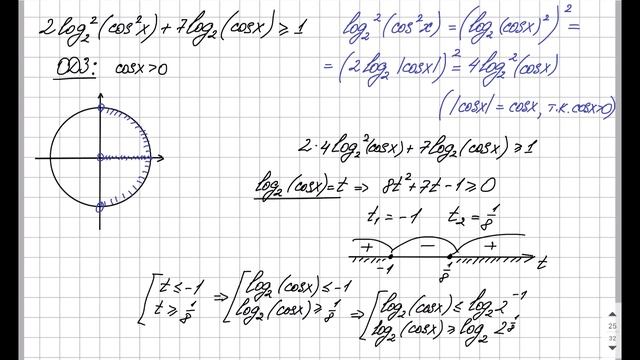 2log₂²(cos²x)+7log₂(cosx)⩾1
ОДЗ: cosx>0
log₂²(cos²x) = (log₂(cosx)²)² =
= (2log₂|cosx|)² = 4log₂²(cosx)
(|cosx| = cosx, т.к. cosx>0)
2·4log₂²(cosx)+7log₂(cosx)⩾1
log₂(cosx)=t ⇒ 8t²+7t-1⩾0
t₁=-1 t₂=1/8
+ − +
-1 1/8 t
[t⩽-1 ⇒ [log₂(cosx)⩽-1 ⇒ [log₂(cosx)⩽log₂2⁻¹
t⩾1/8 log₂(cosx)⩾1/8 log₂(cosx)⩾log₂2^(1/8)
25
32